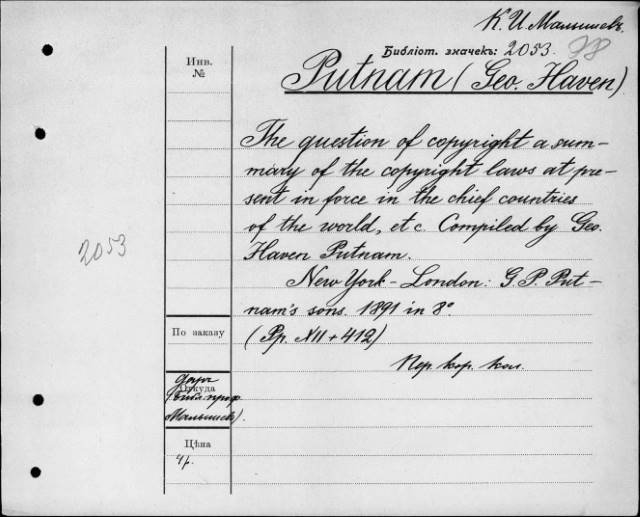 К. И. Малышевъ
Библіот. значекъ: 2053. 78
Putnam (Geo. Haven)
Инв.
№
The question of copyright a sum-
mary of the copyright laws at pre-
sent in force in the chief countries
of the world, etc. Compiled by Geo.
Haven Putnam.
2053
New York - London: G. P. Put-
nam's sons. 1891 in 8°
По заказу
(Pp. XII + 412)
Пер. кор. кол.
Откуда
Даръ
(библ. проф.
Малышева).
Цѣна
4р.